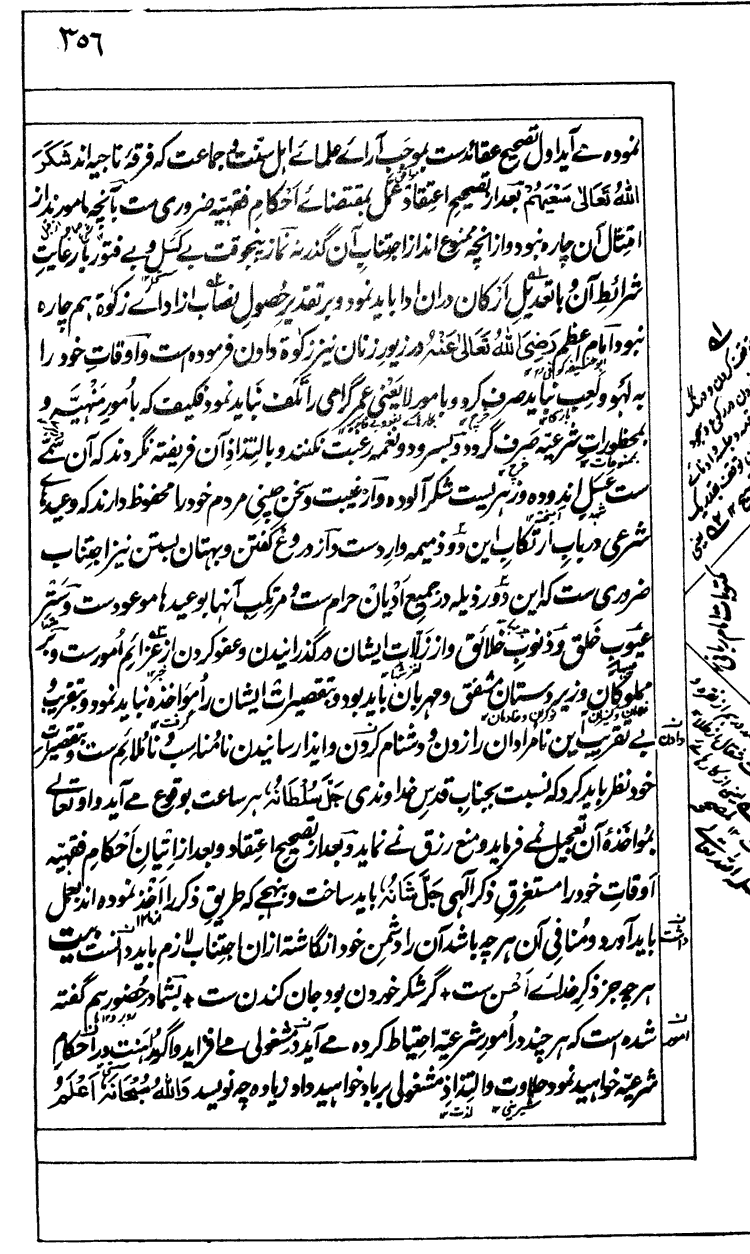 ٣٥٦
نموده مے آید اول تصحیح عقائدست بموجب آرائے علمائے اہل سنت و جماعت کہ فرقۂ ناجیہ اند شَکَرَ
اللہُ تَعَالیٰ سَعْیَہُمْ و بعد از تصحیح اعتقاد عمل بمقتضائے اَحکامِ فقہیّہ ضروری ست بآنچہ مامورند از
امتثال آن چارہ نبود و از انچہ ممنوع اند از اجتناب آن گذر نہ نماز پنجوقت بے کسل و بے فتور با رعایتِ
شرائط آن و با تعدیل ارکان دران ادا باید نمود و بر تقدیر حصولِ نصاب از ادائے زکوٰۃ ہم چارہ
نبود امام اعظم رَضِیَ اللہُ تَعَالیٰ عَنْہُ در زیور زنان نیز زکوٰۃ دادن فرمودہ است و اوقاتِ خود را
بہ لہو و لعب نباید صرف کرد و بامور لا یعنی عمر گرامی را تلف نباید نمود فکیف کہ باُمورِ مَنْہِیَّہ و
محظوراتِ شرعیّہ صرف گردد و بسرود و نغمہ رغبت نکنند و بالتذاذِ آن فریفتہ نگردند کہ آن سمّے
ست عسل اندودہ و زہریست شکر آلودہ و از غیبت و سخن چینی مردم خود را محفوظ دارند کہ وعیدہائے
شرعی در بابِ ارتکابِ این دو ذمیمہ وارد ست و از دروغ گفتن و بہتان بستن نیز اجتناب
ضروری ست کہ این دو رذیلہ در جمیع اَدیان حرام ست و مرتکبِ آنہا بوعیدہا موعود ست و سَتْرِ
عیوبِ خلق و ذنوبِ خلائق و از زلّات ایشان در گذرانیدن و عفو کردن از عزائم اُمور ست و بر
مملوکان و زیردستان مشفق و مہربان باید بود و بتقصیرات ایشان را مؤاخذہ نباید نمود و بتقریب و
بے تقریب این نامرادان را زدن و دشنام کردن و ایذا رسانیدن نامُناسب و نامُلائم ست و تقصیراتِ
خود نظر باید کرد کہ نسبت بجناب قدسِ خداوندی جَلَّ سُلْطَانُہُ ہر ساعت بوقوع مے آید و او تعالٰے
بمواخذۂ آن تعجیل نمے فرماید و منع رزق نے نماید و بعد از تصحیح اعتقاد و بعد از اِتیانِ اَحکامِ فقہیّہ
اَوقاتِ خود را مستغرقِ ذکرِ الٰہی جَلَّ شَانُہُ باید ساخت و بنہجے کہ طریقِ ذکر را اَخذ نمودہ اند بعمل
باید آورد و مُنافی آن ہر چہ باشد آن را دشمنِ خود انگاشتہ ازان اجتناب لازم باید دانست بیت
ہر چہ جز ذکرِ خدائے اَحسن ست + گر شکر خوردن بود جان کندن ست + بشما در حضور ہم گفتہ
شدہ است کہ ہر چند در اُمورِ شرعیّہ احتیاط کردہ مے آید در مشغولی مے افزاید و اگر مداہنت در اَحکامِ
شرعیّہ خواہید نمود حلاوت و التذاذِ مشغولی برباد خواہید داد زیادہ چہ نویسد وَاللہُ سُبْحَانَہُ اَعْلَمُ
دادن
داشت
امور
مکتوبات امام ربانی